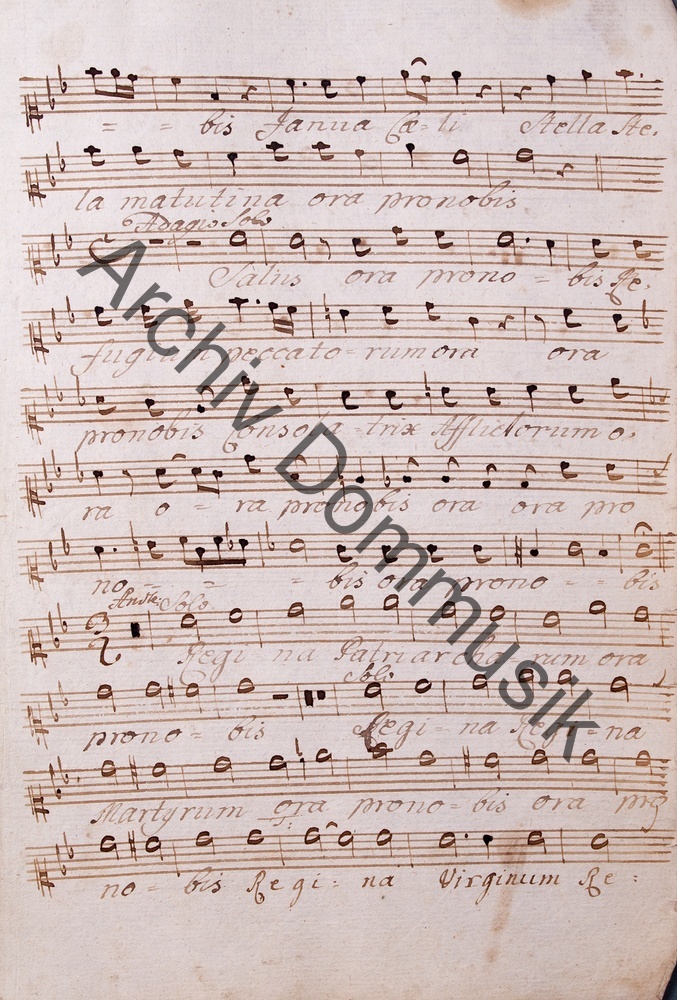 = = bis Janua Cæ - li Stella Ste,
la matutina ora pronobis
Adagio Solo
Salus ora prono = bis Re,
fugium peccato = rum ora ora
pronobis Consola - trix Afflictorum o,
ra o = ra pronobis ora ora pro
no = = = bis ora prono - - bis
Andte. Solo
Regi na Patriarcha - rum ora
prono = bis Soli Regi - na Regi = na
Martyrum ora prono = bis ora pro
no = bis Regi = na Virginum Re =
Archiv Dommusik